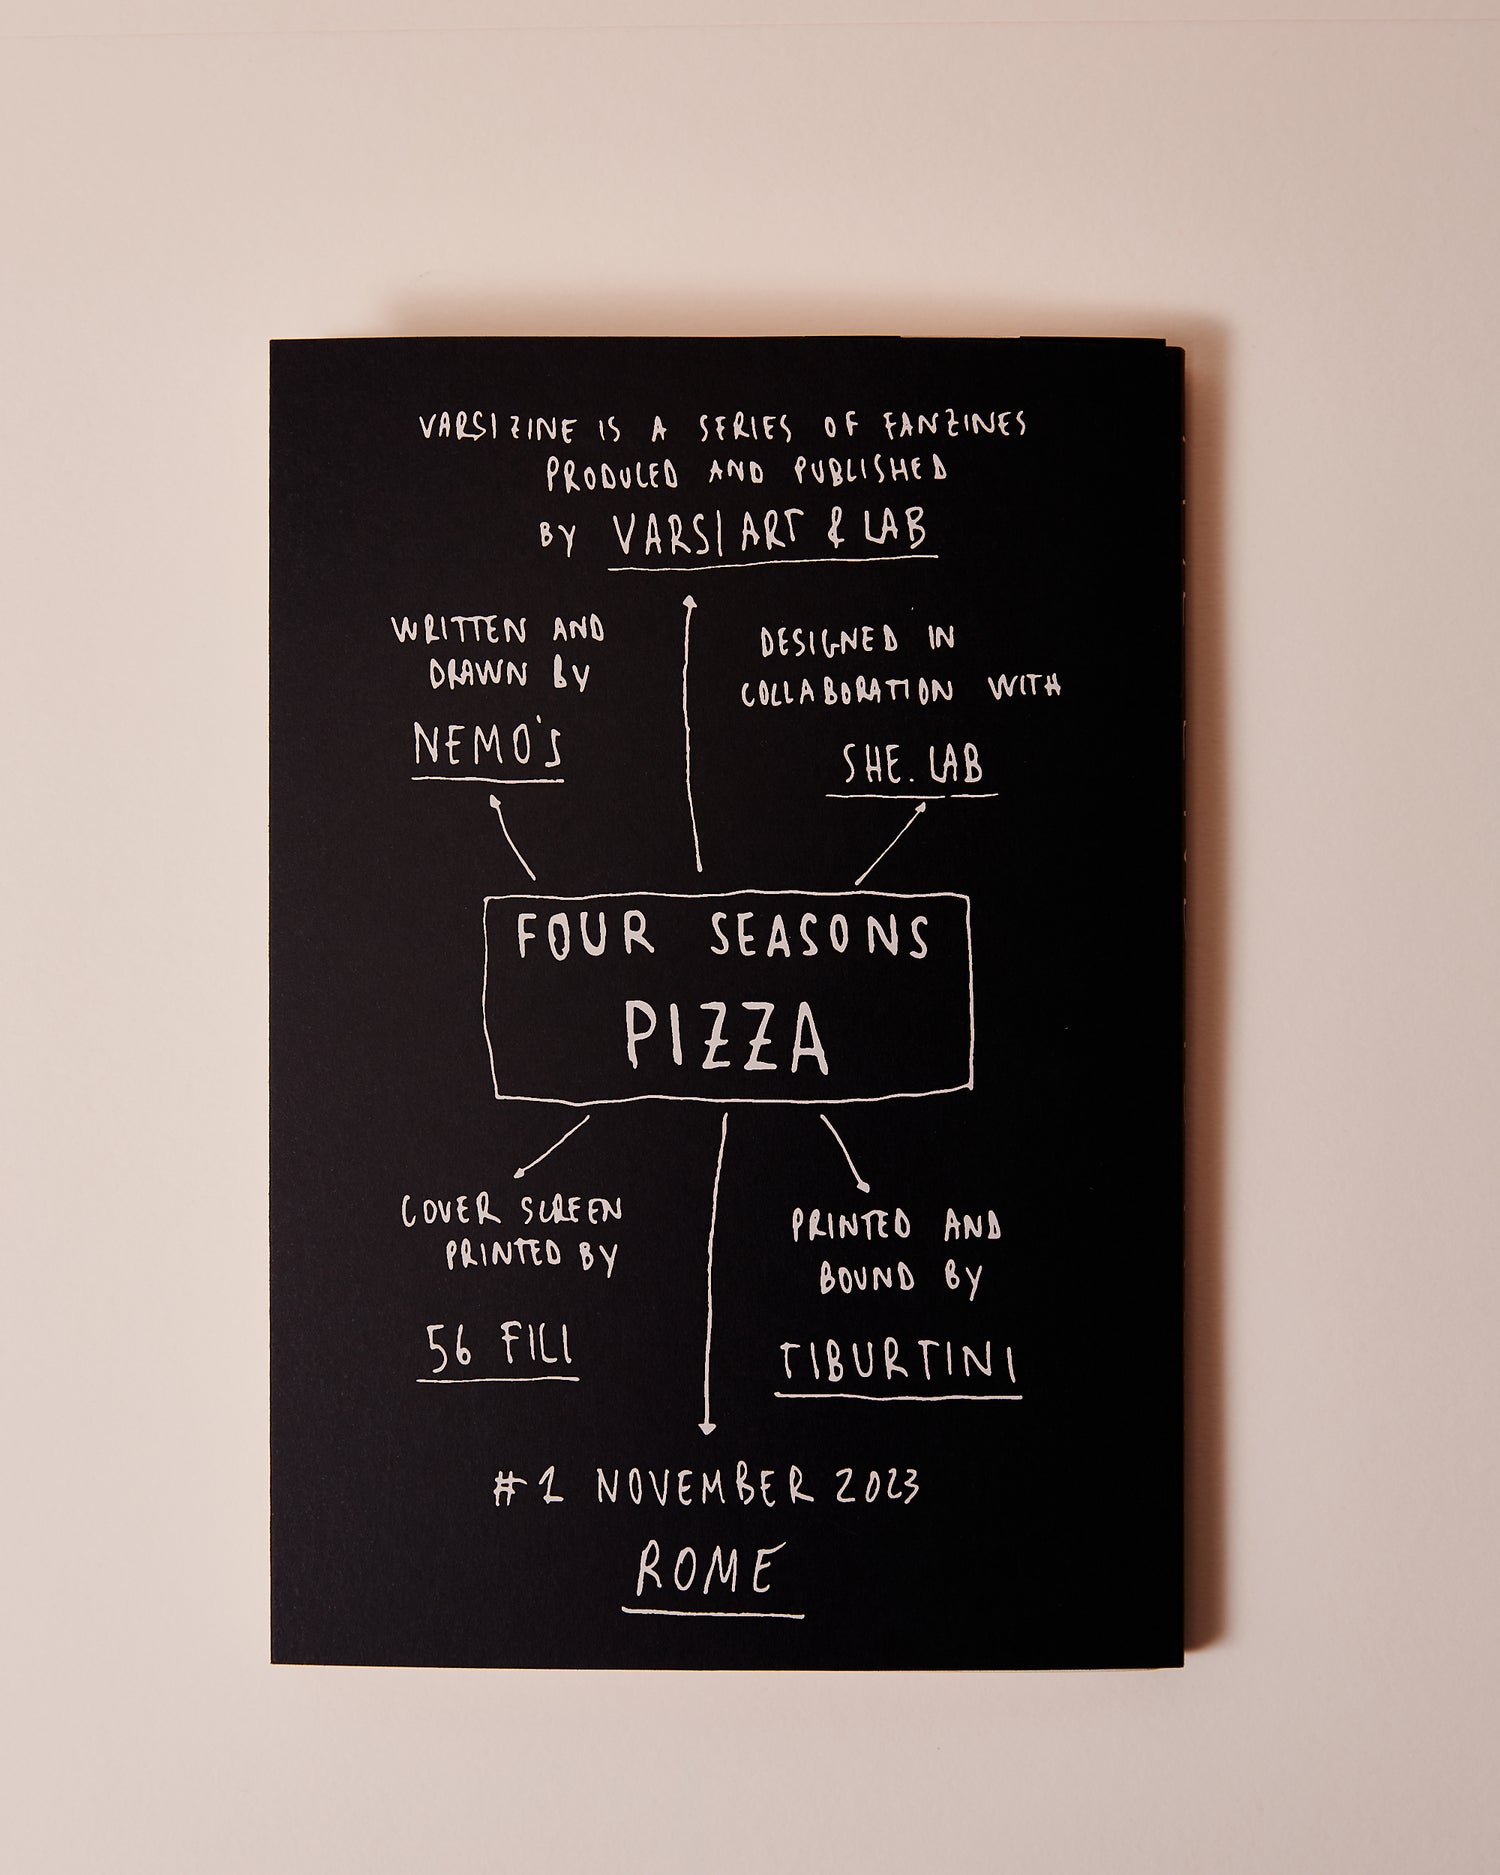 VARSIZINE IS A SERIES OF FANZINES
PRODUCED AND PUBLISHED
BY VARSI ART & LAB
WRITTEN AND
DRAWN BY
NEMO'S
DESIGNED IN
COLLABORATION WITH
SHE.LAB
FOUR SEASONS
PIZZA
COVER SCREEN
PRINTED BY
56 FILI
PRINTED AND
BOUND BY
TIBURTINI
#1 NOVEMBER 2023
ROME